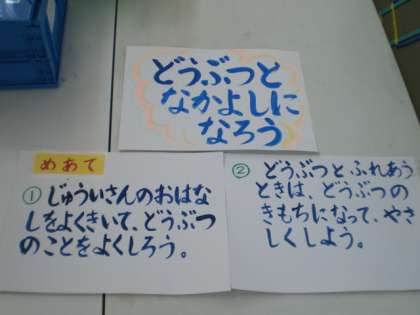 どうぶつと
なかよしに
なろう
めあて
① じゅういさんのおはな
しをよくきいて、どうぶつ
のことをよくしろう。
② どうぶつとふれあう
ときは、どうぶつの
きもちになって、やさ
しくしよう。